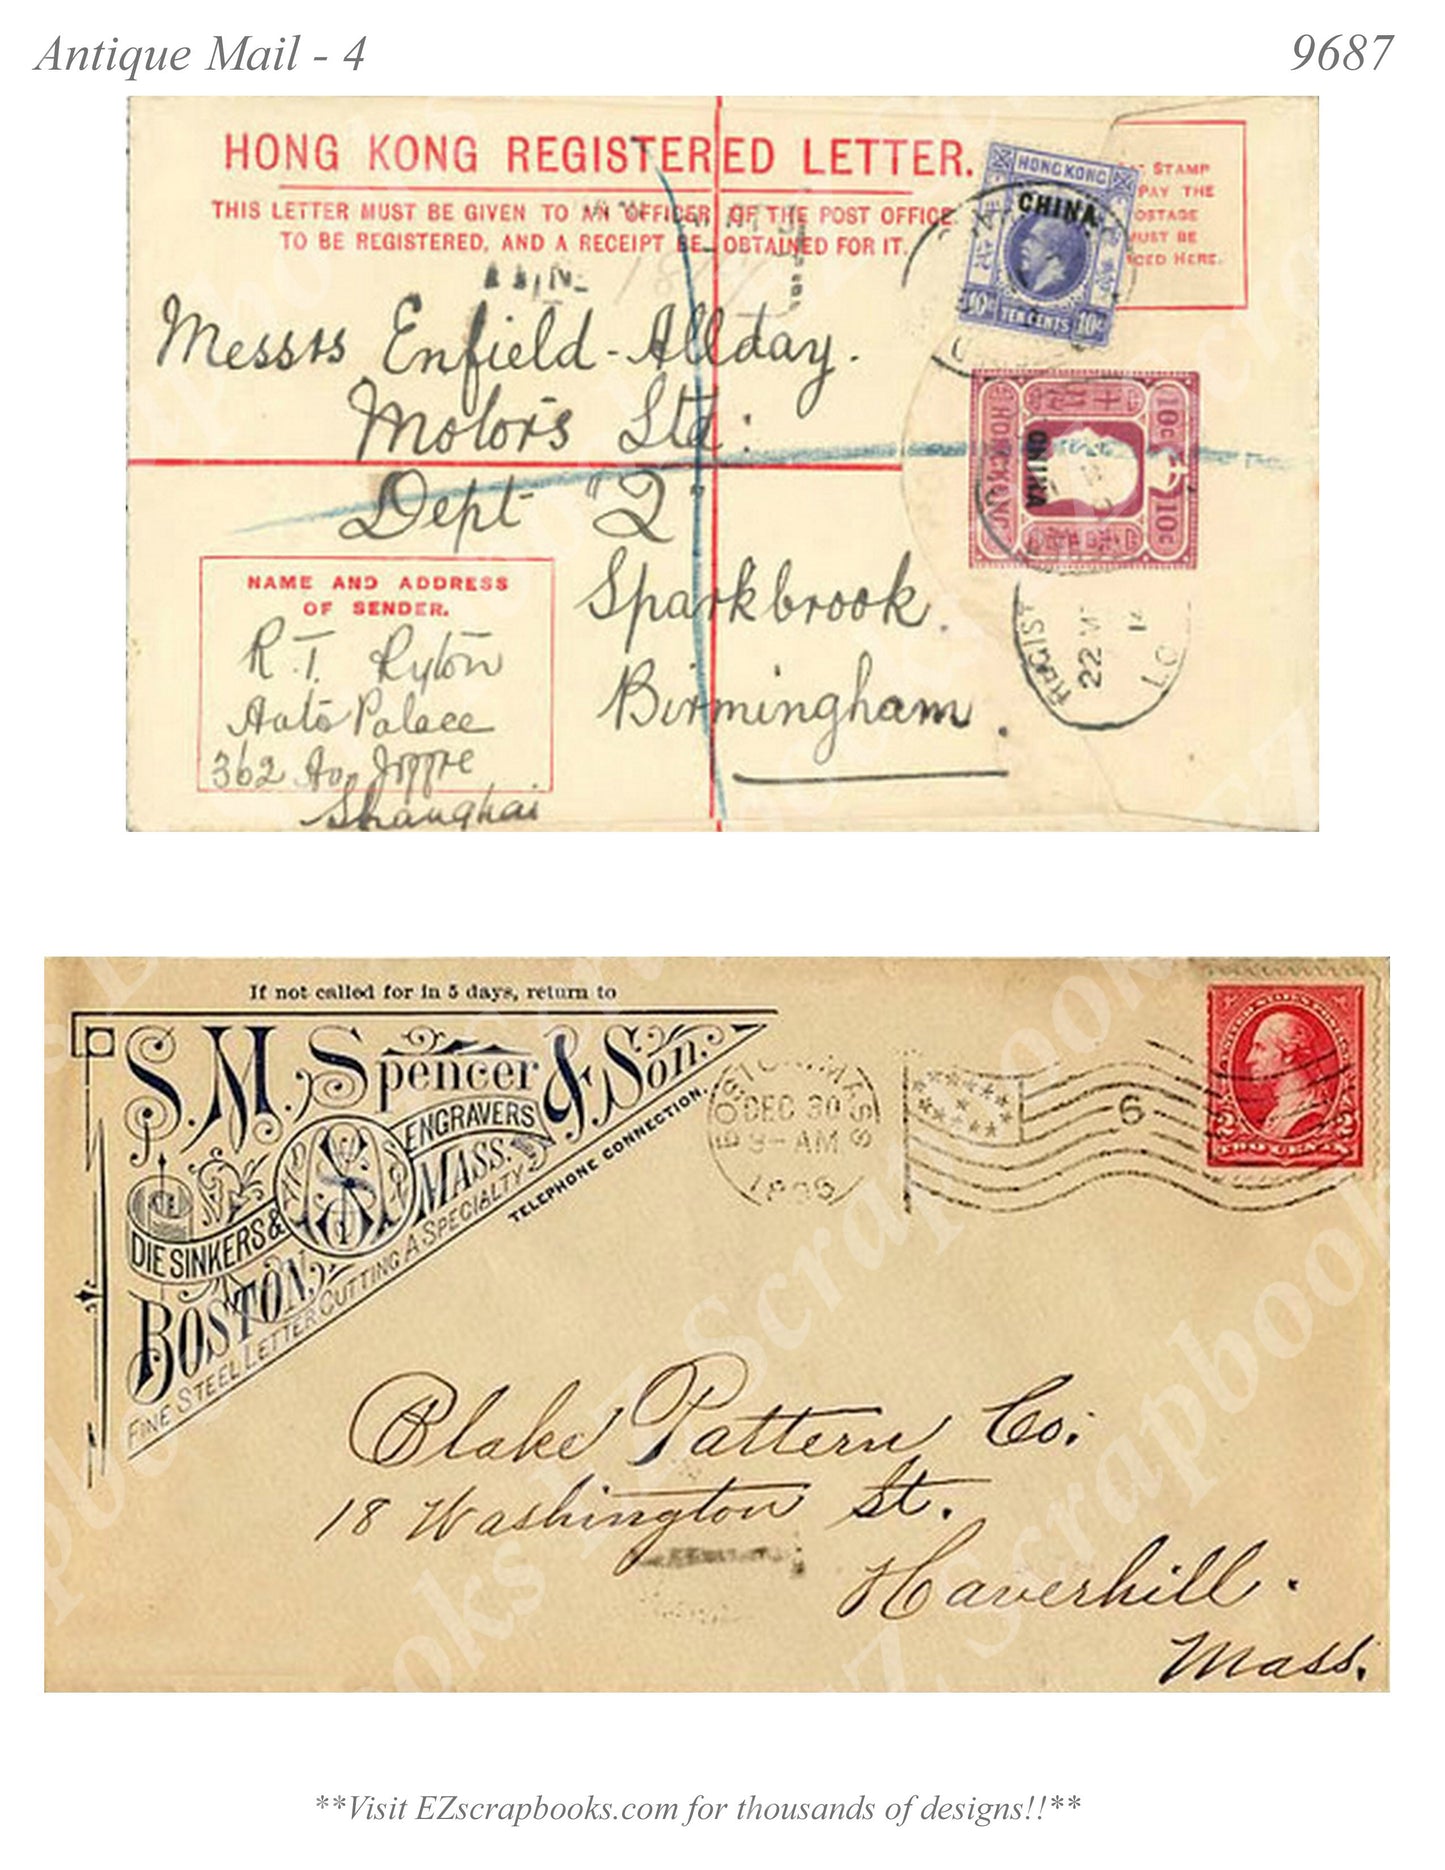 Antique Mail - 4
9687
HONG KONG REGISTERED LETTER.
THIS LETTER MUST BE GIVEN TO AN OFFICER OF THE POST OFFICE
TO BE REGISTERED, AND A RECEIPT BE OBTAINED FOR IT.
STAMP
PAY THE
MUST BE
HERE.
HONG KONG
CHINA
10c TEN CENTS 10c
Messrs Enfield-Allday.
Motors Ltd:
Dept "2"
Sparkbrook.
Birmingham.
HONG KONG
CHINA
10c
10c
22
NAME AND ADDRESS
OF SENDER.
R.T. Ryton
Auto Palace
362 Av. Joffre
Shanghai
If not called for in 5 days, return to
S.M. Spencer & Son.
ENGRAVERS
DIE SINKERS &
BOSTON, MASS.
FINE STEEL LETTER CUTTING A SPECIALTY
TELEPHONE CONNECTION.
BOSTON, MASS
DEC 30
9-AM
6
2 TWO CENTS 2
Blake Pattern Co.
18 Washington St.
Haverhill.
Mass.
EZ Scrapbooks
**Visit EZscrapbooks.com for thousands of designs!!**